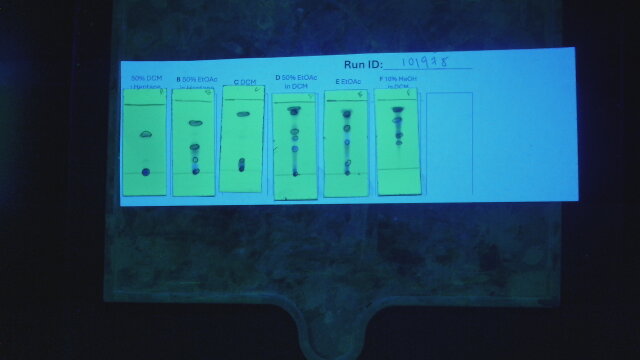 Run ID: 101978
50% DCM
B 50% EtOAc
C DCM
D 50% EtOAc
in DCM
E EtOAc
F 10% MeOH
in DCM